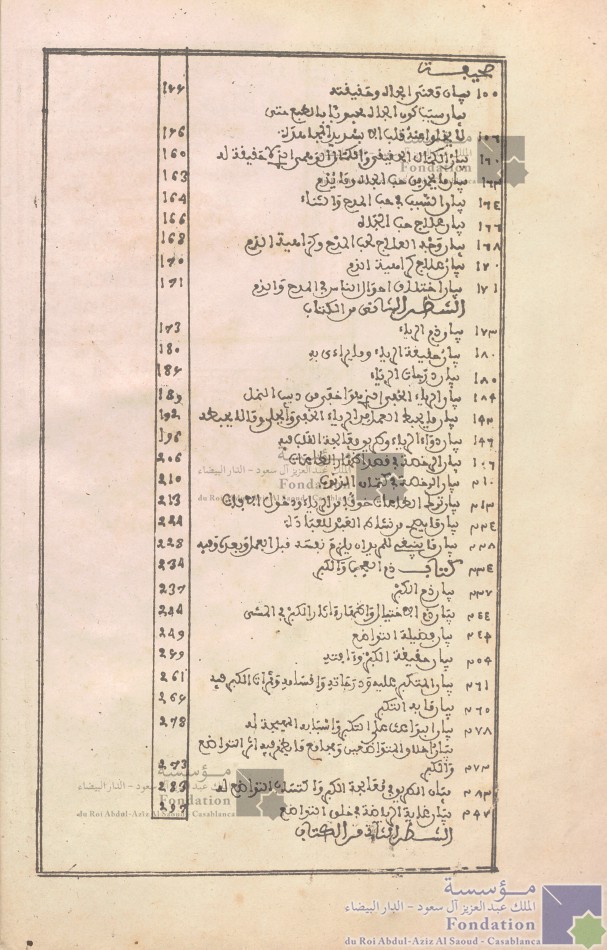 صحيفة
١٠٠ بيان معنى الجاه وحقيقته 144
بيان سبب كون الجاه محبوبا بالطبع حتى
لا يخلو عنه قلب الا بشديد المجاهدة 146
بيان الكمال الحقيقي والكمال الوهمي الذي لا حقيقة له 160
بيان ما يحمد من حب الجاه وما يذم 163
١٦٤ بيان السبب في حب المدح والثناء 164
١٦٦ بيان علاج حب الجاه 166
١٦٨ بيان وجه العلاج لحب المدح وكراهية الذم 168
١٧٠ بيان علاج كراهية الذم 170
١٧١ بيان اختلاف احوال الناس في المدح والذم 171
الشطر الثاني من الكتاب
١٧٣ بيان ذم الرياء 173
١٨٠ بيان حقيقة الرياء وما يراءى به 180
بيان درجات الرياء
بيان الرياء الخفي الذي هو اخفى من دبيب النمل 189
بيان ما يحبط العمل من الرياء الخفي والجلي وما لا يحبطه 192
بيان دواء الرياء وكيفية معالجة القلب فيه 196
بيان الرخصة في قصد اظهار الطاعات 206
بيان الرخصة في كتمان الذنوب 210
بيان ترك الطاعات خوفا من الرياء ودخول الآفات 213
بيان ما يصح من نشاط العبد للعبادة 224
بيان ما ينبغي للمريد ان يلزم نفسه قبل العمل وبعده وفيه 228
كتاب ذم العجب والكبر 234
بيان ذم الكبر 237
بيان ذم الاختيال واظهار آثار الكبر في المشي 244
بيان فضيلة التواضع 249
بيان حقيقة الكبر وآفته
بيان المتكبر عليه ودرجاته واقسامه وثمرات الكبر فيه 261
بيان ما به التكبر 264
بيان البواعث على التكبر واسبابه المهيجة له 278
بيان اخلاق المتواضعين ومجامع ما يظهر فيه اثر التواضع
والكبر 273
بيان الطريق في معالجة الكبر واكتساب التواضع له 283
بيان غاية الرياضة في خلق التواضع 297
الشطر الثاني من الكتاب
مؤسسة
الملك عبد العزيز آل سعود - الدار البيضاء
Fondation
du Roi Abdul-Aziz Al Saoud - Casablanca